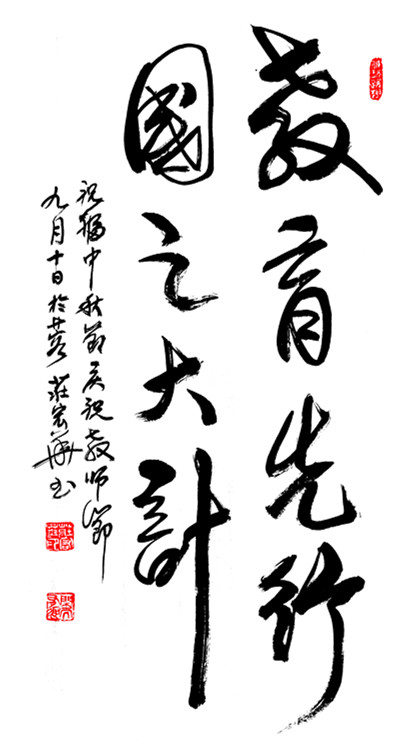 教育先行
國之大計
祝福中秋節慶祝教師節
九月十日於蓉莊宏華书